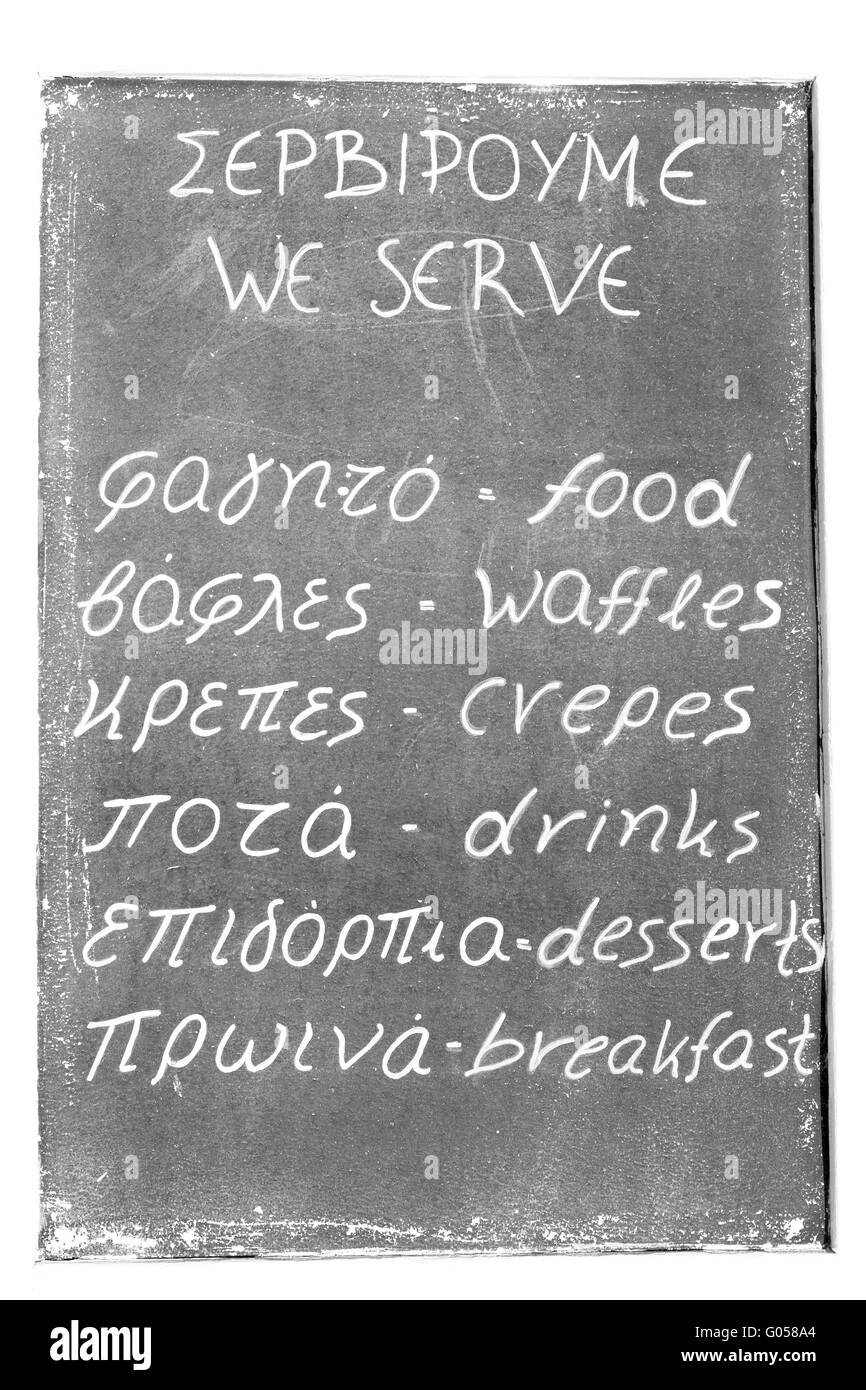 ΣΕΡΒΙΡΟΥΜΕ
WE SERVE
φαγητό = food
βάφλες = waffles
κρεπες - crepes
ποτά - drinks
επιδόρπια = desserts
πρωινά - breakfast
a alamy stock photo
G058A4
www.alamy.com